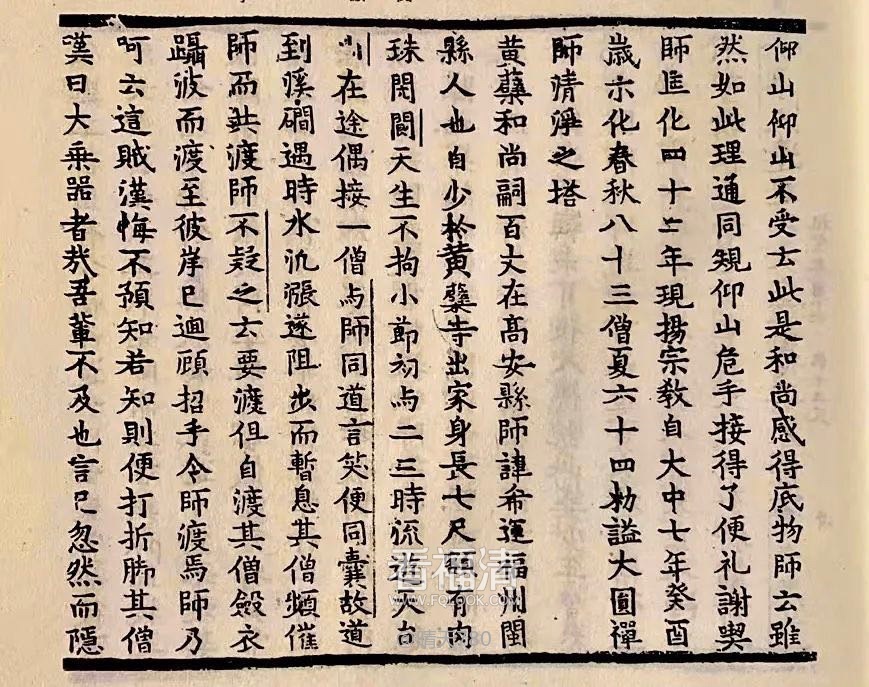 仰山仰山不受云此是和尚感得底物師云雖
然如此理通同規仰山危手接得了便礼謝喫
師匡化四十二年現揚宗教自大中七年癸酉
歲示化春秋八十三僧夏六十四勑謚大圓禪
師清淨之塔
黄蘗和尚嗣百丈在髙安縣師諱希運福州閩
縣人也自少於黄蘗寺出家身長七尺額有肉
珠閌閬天生不拘小節初与二三時流遊天台
在途偶接一僧与師同道言笑便同囊故道
到溪㵎遇時水氾漲遂阻步而暫息其僧頻催
師而共渡師不疑之云要渡但自渡其僧斂衣
躡波而渡至彼岸已迴顧招手令師渡焉師乃
呵云這賊漢悔不預知若知則便打折脚其僧
嘆曰大乗器者㢤吾輩不及也言已忽然而隱
看福清
www.FQlook.com